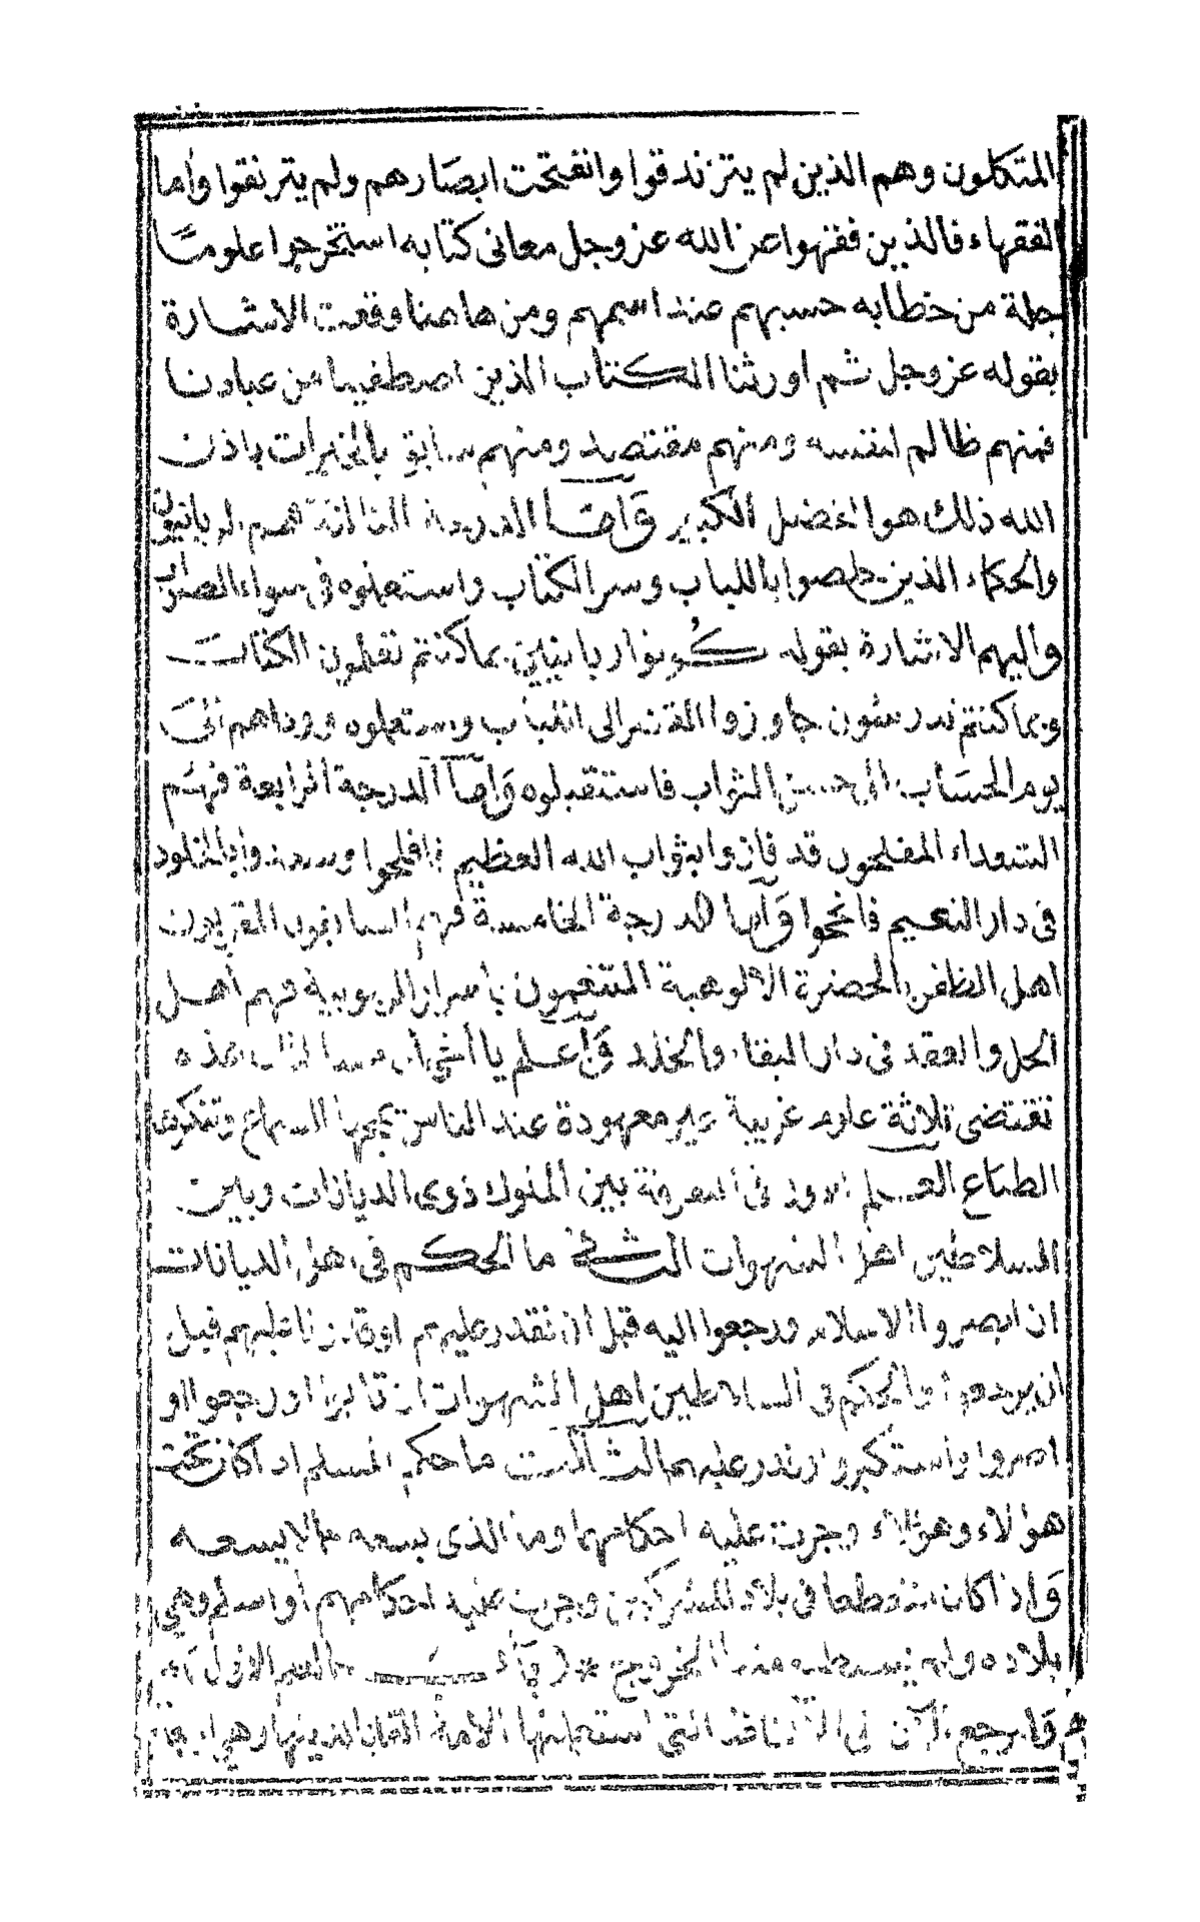 المتكلون وهم الذين لم يتزندقوا وانفتحت ابصارهم ولم يترنقوا وأما
الفقهاء فالذين فقهوا عن الله عز وجل معانى كتابه استخرجوا علومًا
جملة من خطابه حسبهم عند اسمهم ومن هاهنا وقعت الاشارة
بقوله عز وجل ثم اورثنا الكتاب الذين اصطفينا من عبادنا
فمنهم ظالم لنفسه ومنهم مقتصد ومنهم سابق بالخيرات باذن
الله ذلك هو الفضل الكبير وَأما الدرجة الثالثة فهم الربانيون
والحكماء الذين خلصوا باللباب وسر الكتاب واستعملوه فى سواء الصواب
واليهم الاشارة بقوله كُونوا ربانيين بما كنتم تعلمون الكتاب
وبما كنتم تدرسون جاوزوا القشر الى اللباب واستعملوه وودناهم
يوم الحسَاب الى حسن الثواب فاستقبلوه وَأما الدرجة الرابعة فهم
السعداء المفلحون قد فازوا بثواب الله العظيم فافلحوا وأبد الخلود
فى دار النعيم فانجحوا وَأما الدرجة الخامسة فهم السابقون المقربون
اهل الظفر بالحضرة الالوهية المتنعمون بأسرار الربوبية فهم أهل
الحل والعقد فى دار البقاء والخلد وَاعلم يا أخى أن هذه
تقتضى ثلاثة علوم غريبة غير معهودة عند الناس تمجها الاسماع وتنكرها
الطباع العلم الاول فى المعرفة بين الملوك ذوى الديانات وبين
السلاطين اهل الشهوات ما الحكم فى اهل الديانات
ان ابصروا الاسلام ورجعوا اليه قبل أن نقدر عليهم او قبل
ان والحكم فى السلاطين اهل الشهوات ان تابوا او رجعوا او
اصروا واستكبروا عليهم الثالث ما حكم المسلم اذا كان تحت
هؤلاء وهؤلاء وجرت عليه احكامهما وما الذى يسعه مما لا يسعه
وَاذا كان فى بلاد المشركين وجرت عليه احكامهم أو اسلم وهى
بلاده ولم الخروج * العلم الاول
فى التى استحلتها الامة